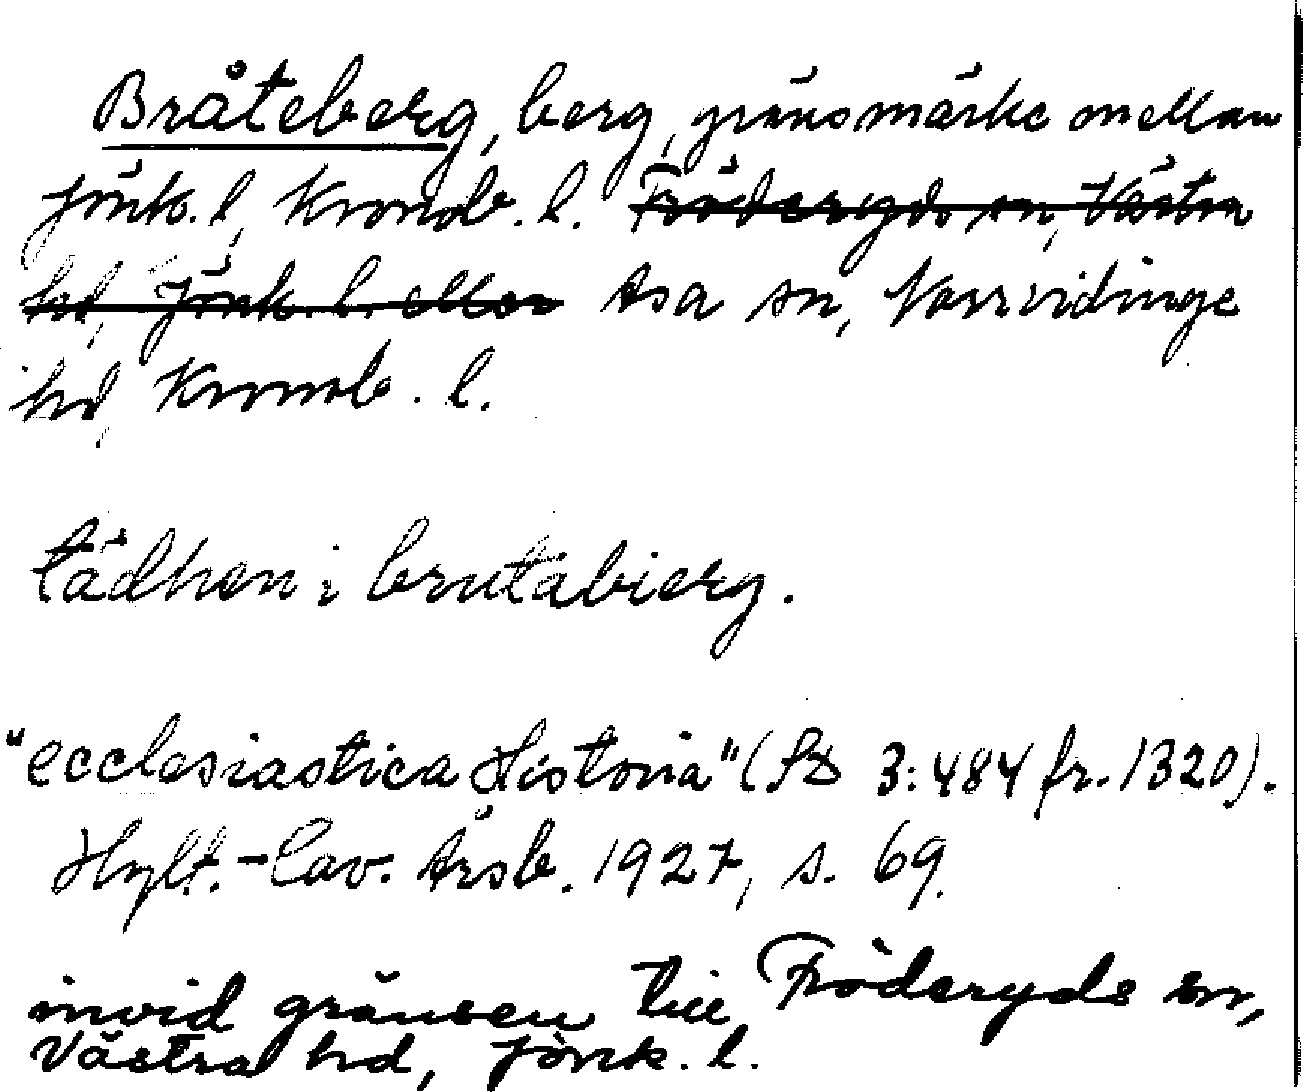 Bråteberg, berg, gränsmärke mellan
Jönk. l, Kronob. l. Fröderyds sn, Västra
hd, Jönk. l. eller Asa sn, Norrvidinge
hd, Kronob. l.
tädhen i brutabierg.
"ecclesiastica Historia" (SD 3:484 fr. 1320).
Hylt.-Cav. Årsb. 1927, s. 69.
invid gränsen till Fröderyds sn,
Västra hd, Jönk. l.